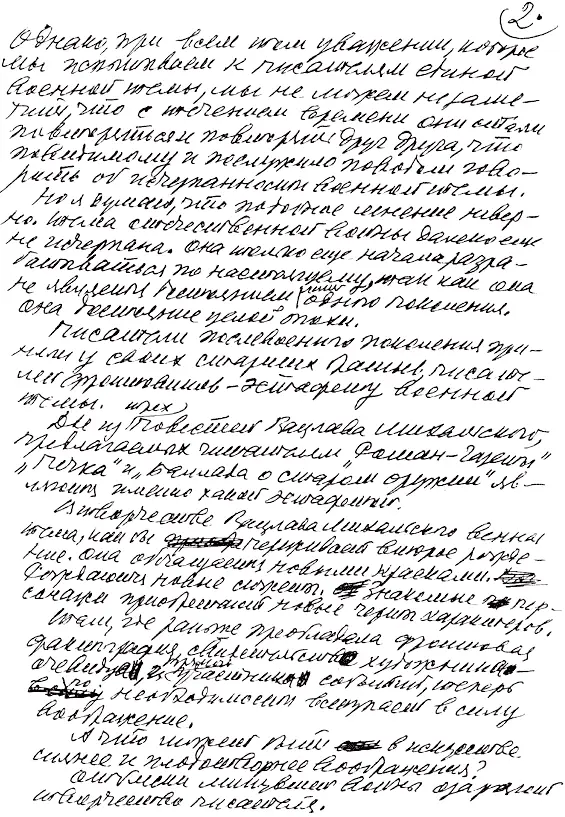 2.
Однако, при всем том уважении, которое
мы испытываем к писателям старой
военной темы, мы не можем не заме-
тить, что с течением времени они стали
повторяться и повторять друг друга, что
по-видимому и послужило поводом гово-
рить об исчерпанности военной темы.
Но я думаю, что подобное мнение невер-
но. Тема отечественной войны далеко еще
не исчерпана. Она только еще начала разра-
батываться по настоящему, так как она
не является достоянием лишь одного поколения.
Она достояние целой эпохи.
Писатели послевоенного поколения при-
няли у своих старших братьев, писате-
лей фронтовиков – эстафету военной
темы.
Две из трех повестей Вацлава Михальского,
предлагаемых читателям "Роман-Газеты"
"Печка" и "Баллада о старом оружии" яв-
ляются именно такой эстафетой.
В творчестве Вацлава Михальского военная
тема, как бы переживает второе рожде-
ние. Она обогащается новыми красками.
Рождаются новые сюжеты. Знакомые пер-
сонажи приобретают новые черты характеров.
Там, где раньше преобладала фронтовая
фактография, свидетельство художника –
очевидца, участника событий, теперь
по необходимости вступает в силу
воображение.
А что может быть в искусстве
сильнее и плодотворнее воображения?
Отблески минувшей войны озаряют
творчество писателя.